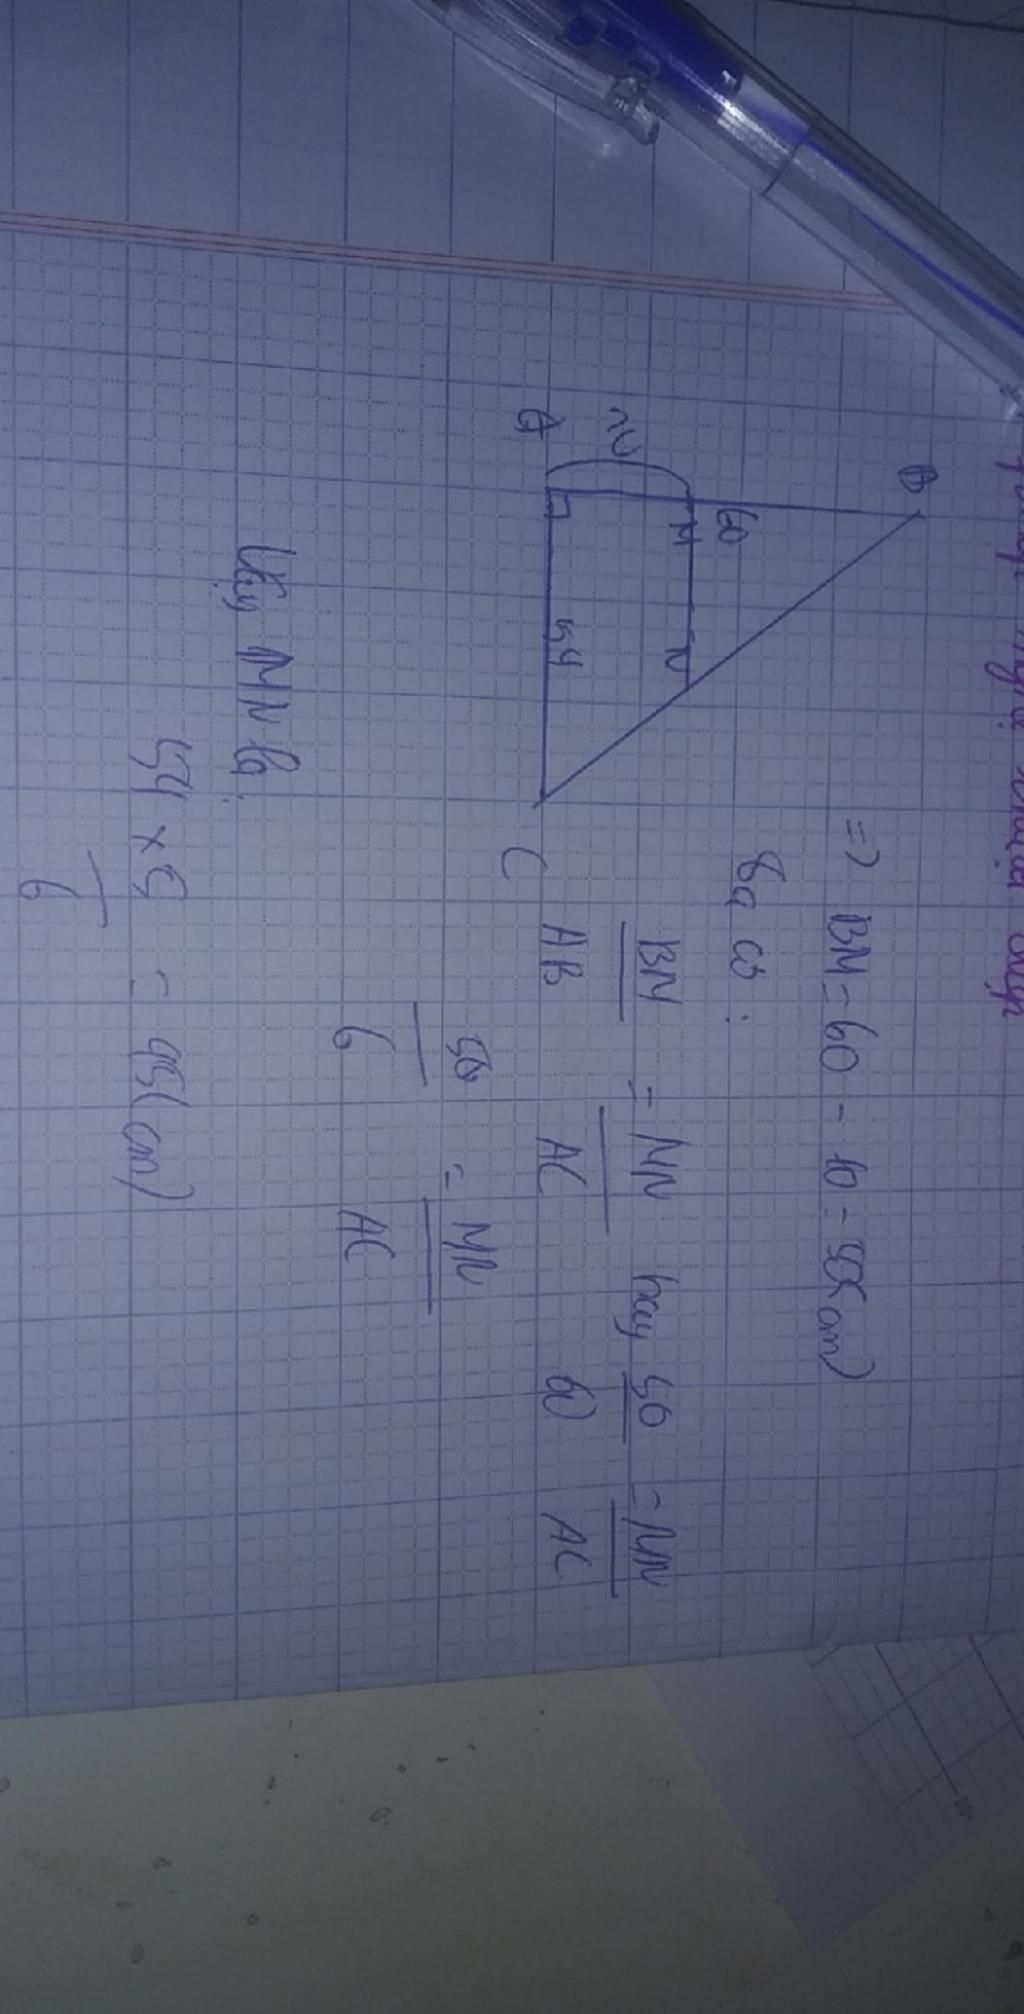 B
60
M
N
10
A
54
C
=> BM = 60 - 10 = 50(cm)
Ta có :
BM/AB = MN/AC hay 50/60 = MN/AC
50/6 = MN/AC
Vậy MN là:
54 x 5/6 = 45(cm)